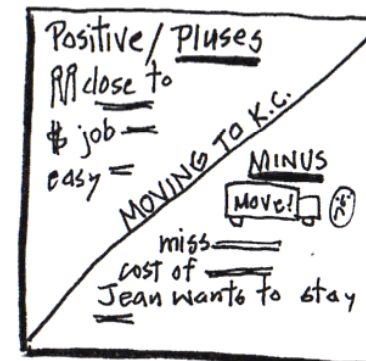 Positive/Pluses
close to
$ job
easy
MOVING TO K.C.
MINUS
MOVE!
miss
cost of
Jean wants to stay